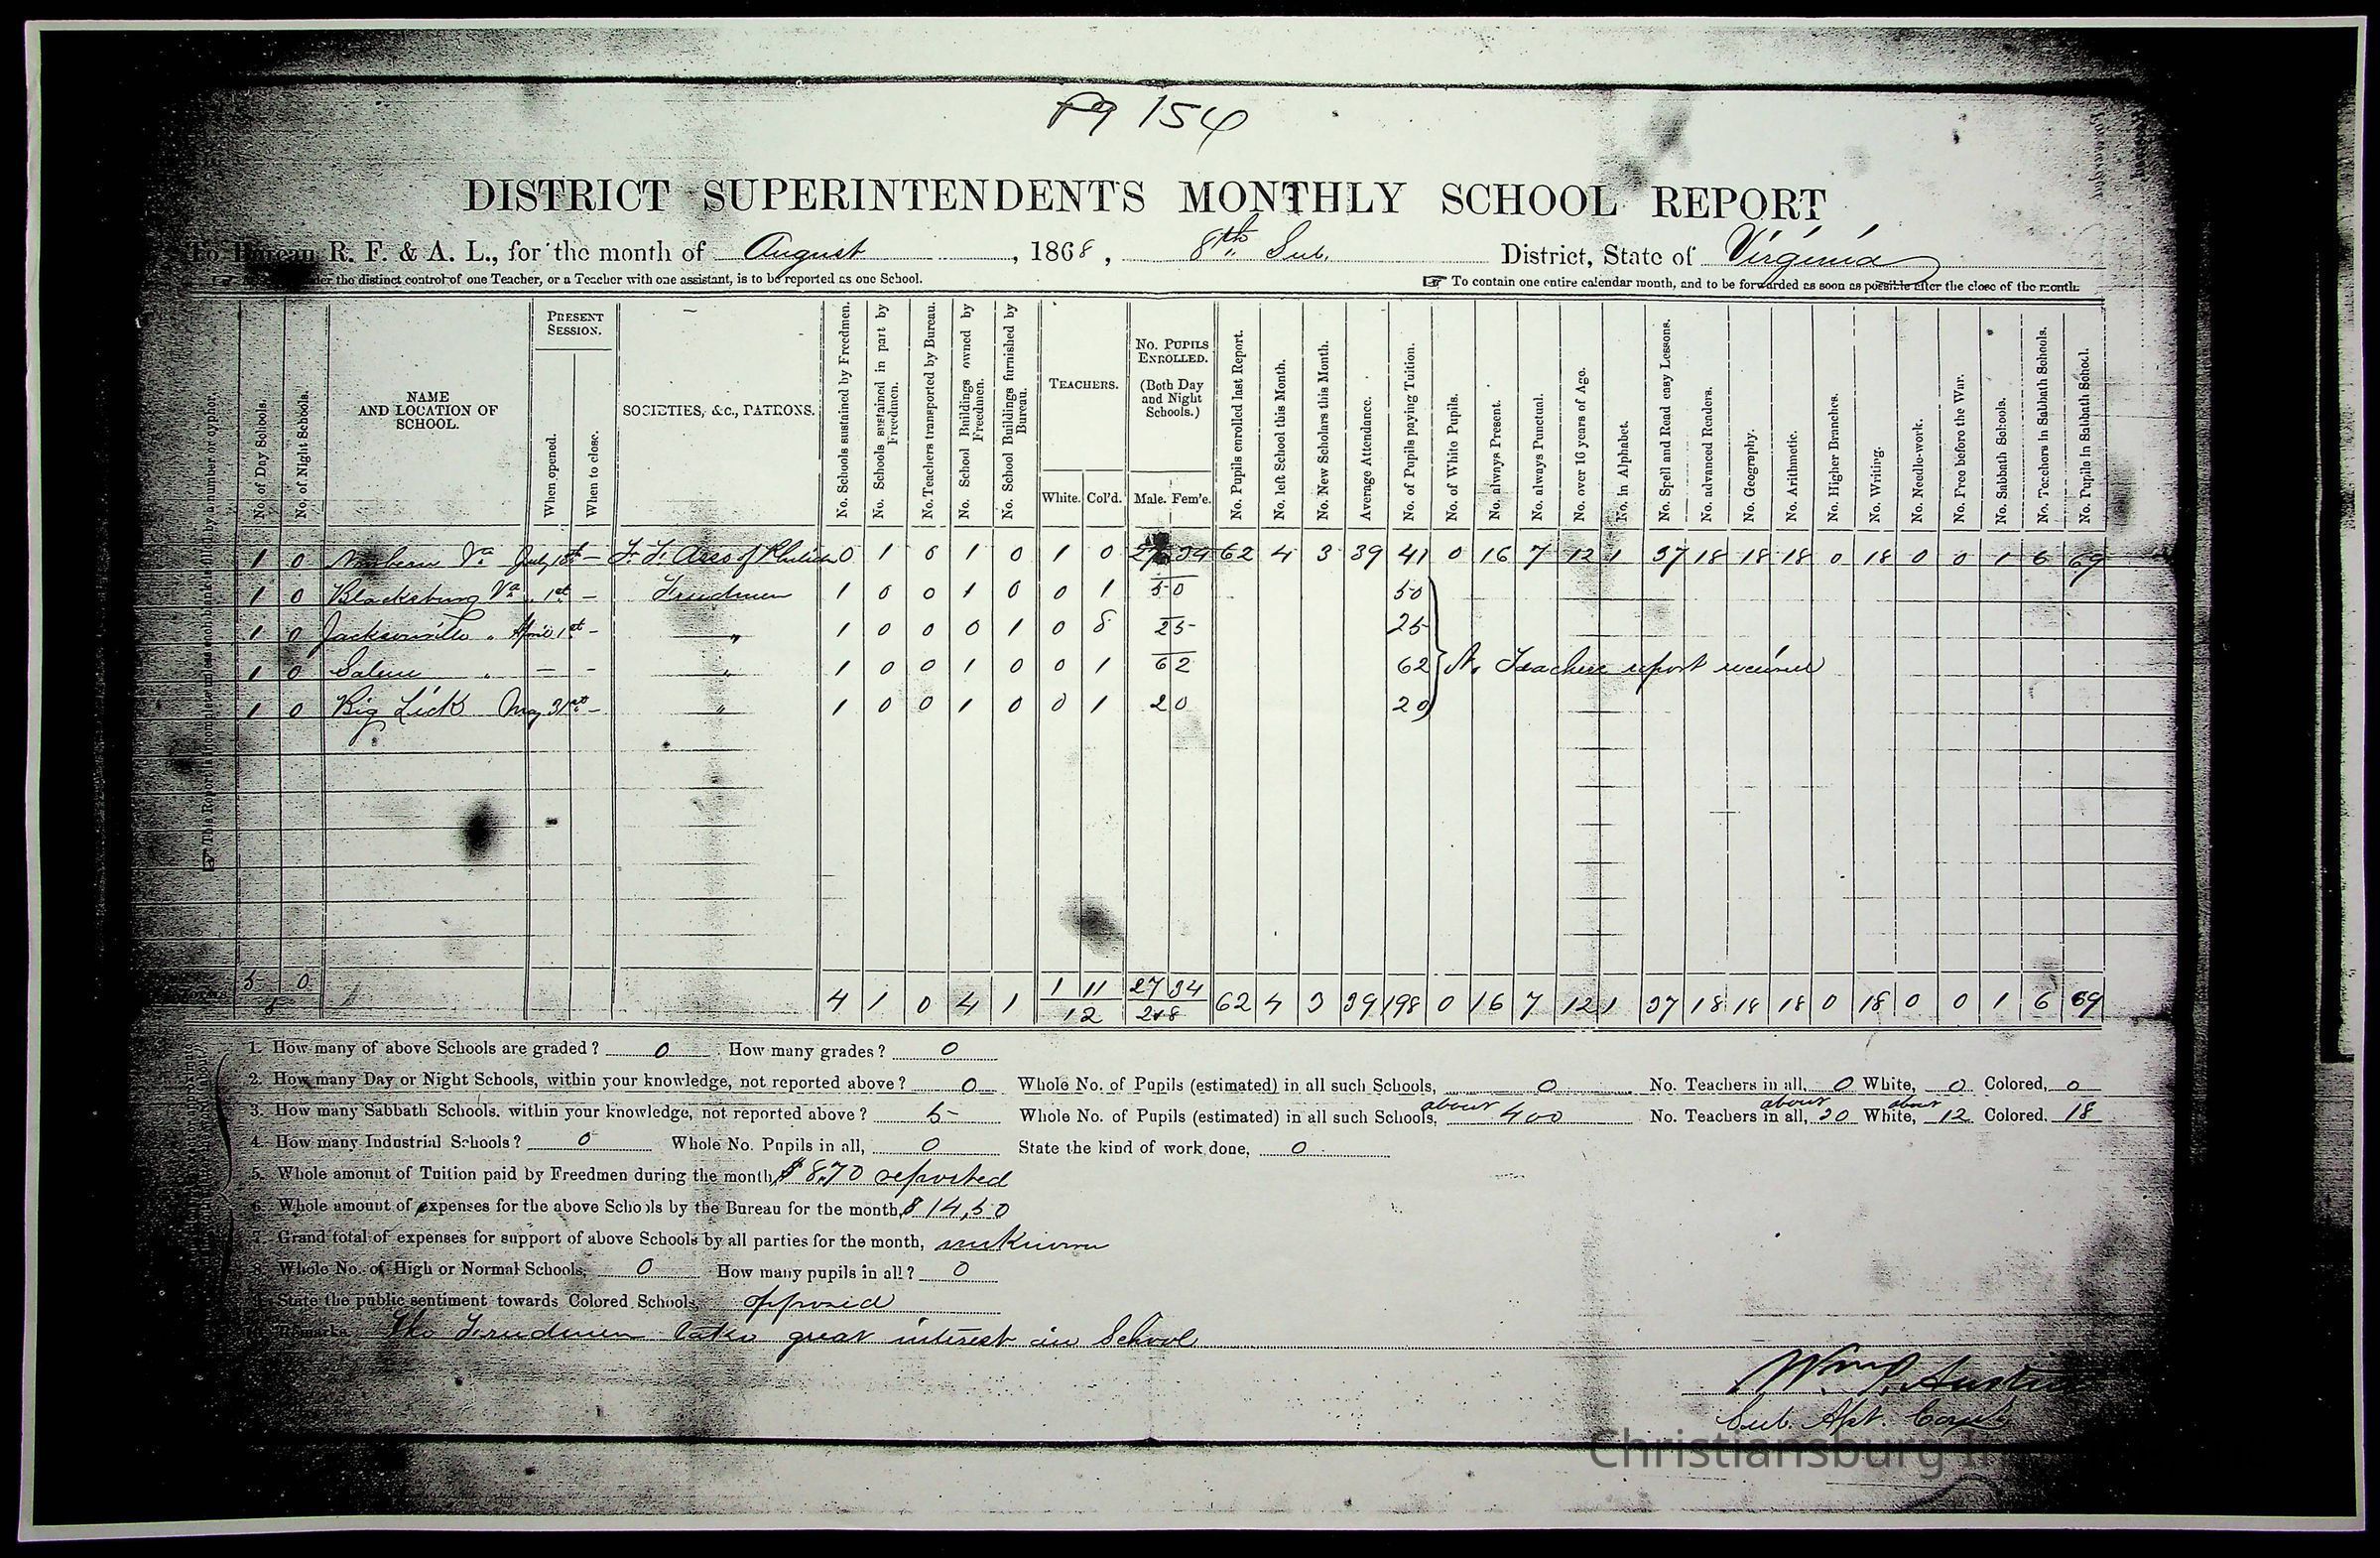 Pg 154
DISTRICT SUPERINTENDENT'S MONTHLY SCHOOL REPORT
To Bureau R. F. & A. L., for the month of August, 1868, 8th Sub. District, State of Virginia
der the distinct control of one Teacher, or a Teacher with one assistant, is to be reported as one School. To contain one entire calendar month, and to be forwarded as soon as possible after the close of the month.
This Report is incomplete unless each blank is filled by a number or cypher.
No. of Day Schools.
No. of Night Schools.
NAME AND LOCATION OF SCHOOL.
PRESENT SESSION.
When opened.
When to close.
SOCIETIES, &C., PATRONS.
No. Schools sustained by Freedmen.
No. Schools sustained in part by Freedmen.
No. Teachers transported by Bureau.
No. School Buildings owned by Freedmen.
No. School Buildings furnished by Bureau.
TEACHERS.
White. Col'd.
No. PUPILS ENROLLED.
(Both Day and Night Schools.)
Male. Fem'e.
No. Pupils enrolled last Report.
No. left School this Month.
No. New Scholars this Month.
Average Attendance.
No. of Pupils paying Tuition.
No. of White Pupils.
No. always Present.
No. always Punctual.
No. over 16 years of Age.
No. in Alphabet.
No. Spell and Read easy Lessons.
No. advanced Readers.
No. Geography.
No. Arithmetic.
No. Higher Branches.
No. Writing.
No. Needle-work.
No. Free before the War.
No. Sabbath Schools.
No. Teachers in Sabbath Schools.
No. Pupils in Sabbath School.
1 0 Newbern Va July 1st – F. F. Asso of 0 1 0 1 0 1 0 27 34 62 4 3 39 41 0 16 7 12 1 37 18 18 18 0 18 0 0 1 6 69
1 0 Blacksburg Va " 1st – Freedmen 1 0 0 1 0 0 1 50 50
1 0 Jacksonville " April 1st – " 1 0 0 0 1 0 8 25 25
1 0 Salem " – – " 1 0 0 1 0 0 1 62 62 No Teachers report received
1 0 Big Lick May 31st – " 1 0 0 1 0 0 1 20 20
5 0 4 1 0 4 1 1 11 27 34 62 4 3 39 198 0 16 7 12 1 37 18 18 18 0 18 0 0 1 6 69
5 12 218
1. How many of above Schools are graded? 0 How many grades? 0
2. How many Day or Night Schools, within your knowledge, not reported above? 0 Whole No. of Pupils (estimated) in all such Schools, 0 No. Teachers in all, 0 White, 0 Colored, 0
3. How many Sabbath Schools, within your knowledge, not reported above? 5 Whole No. of Pupils (estimated) in all such Schools, about 400 No. Teachers in all, about 30 White, about 12 Colored, 18
4. How many Industrial Schools? 0 Whole No. Pupils in all, 0 State the kind of work done, 0
5. Whole amount of Tuition paid by Freedmen during the month, $8,70 reported
6. Whole amount of expenses for the above Schools by the Bureau for the month, $14,50
7. Grand total of expenses for support of above Schools by all parties for the month, unknown
8. Whole No. of High or Normal Schools, 0 How many pupils in all? 0
9. State the public sentiment towards Colored Schools, opposed
Remarks. The Freedmen take great interest in School
Wm P. Austin
Sub. Asst. Comr
Christiansburg In